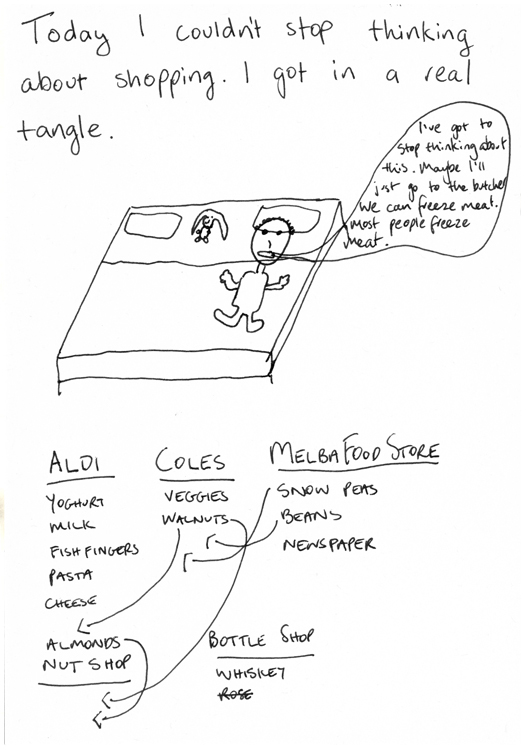 Today I couldn't stop thinking
about shopping. I got in a real
tangle.
I've got to
stop thinking about
this. Maybe I'll
just go to the butcher
We can freeze meat.
most people freeze
meat.
ALDI
YOGHURT
MILK
FISH FINGERS
PASTA
CHEESE
ALMONDS
NUT SHOP
COLES
VEGGIES
WALNUTS
MELBA FOOD STORE
SNOW PEAS
BEANS
NEWSPAPER
BOTTLE SHOP
WHISKEY
ROSE